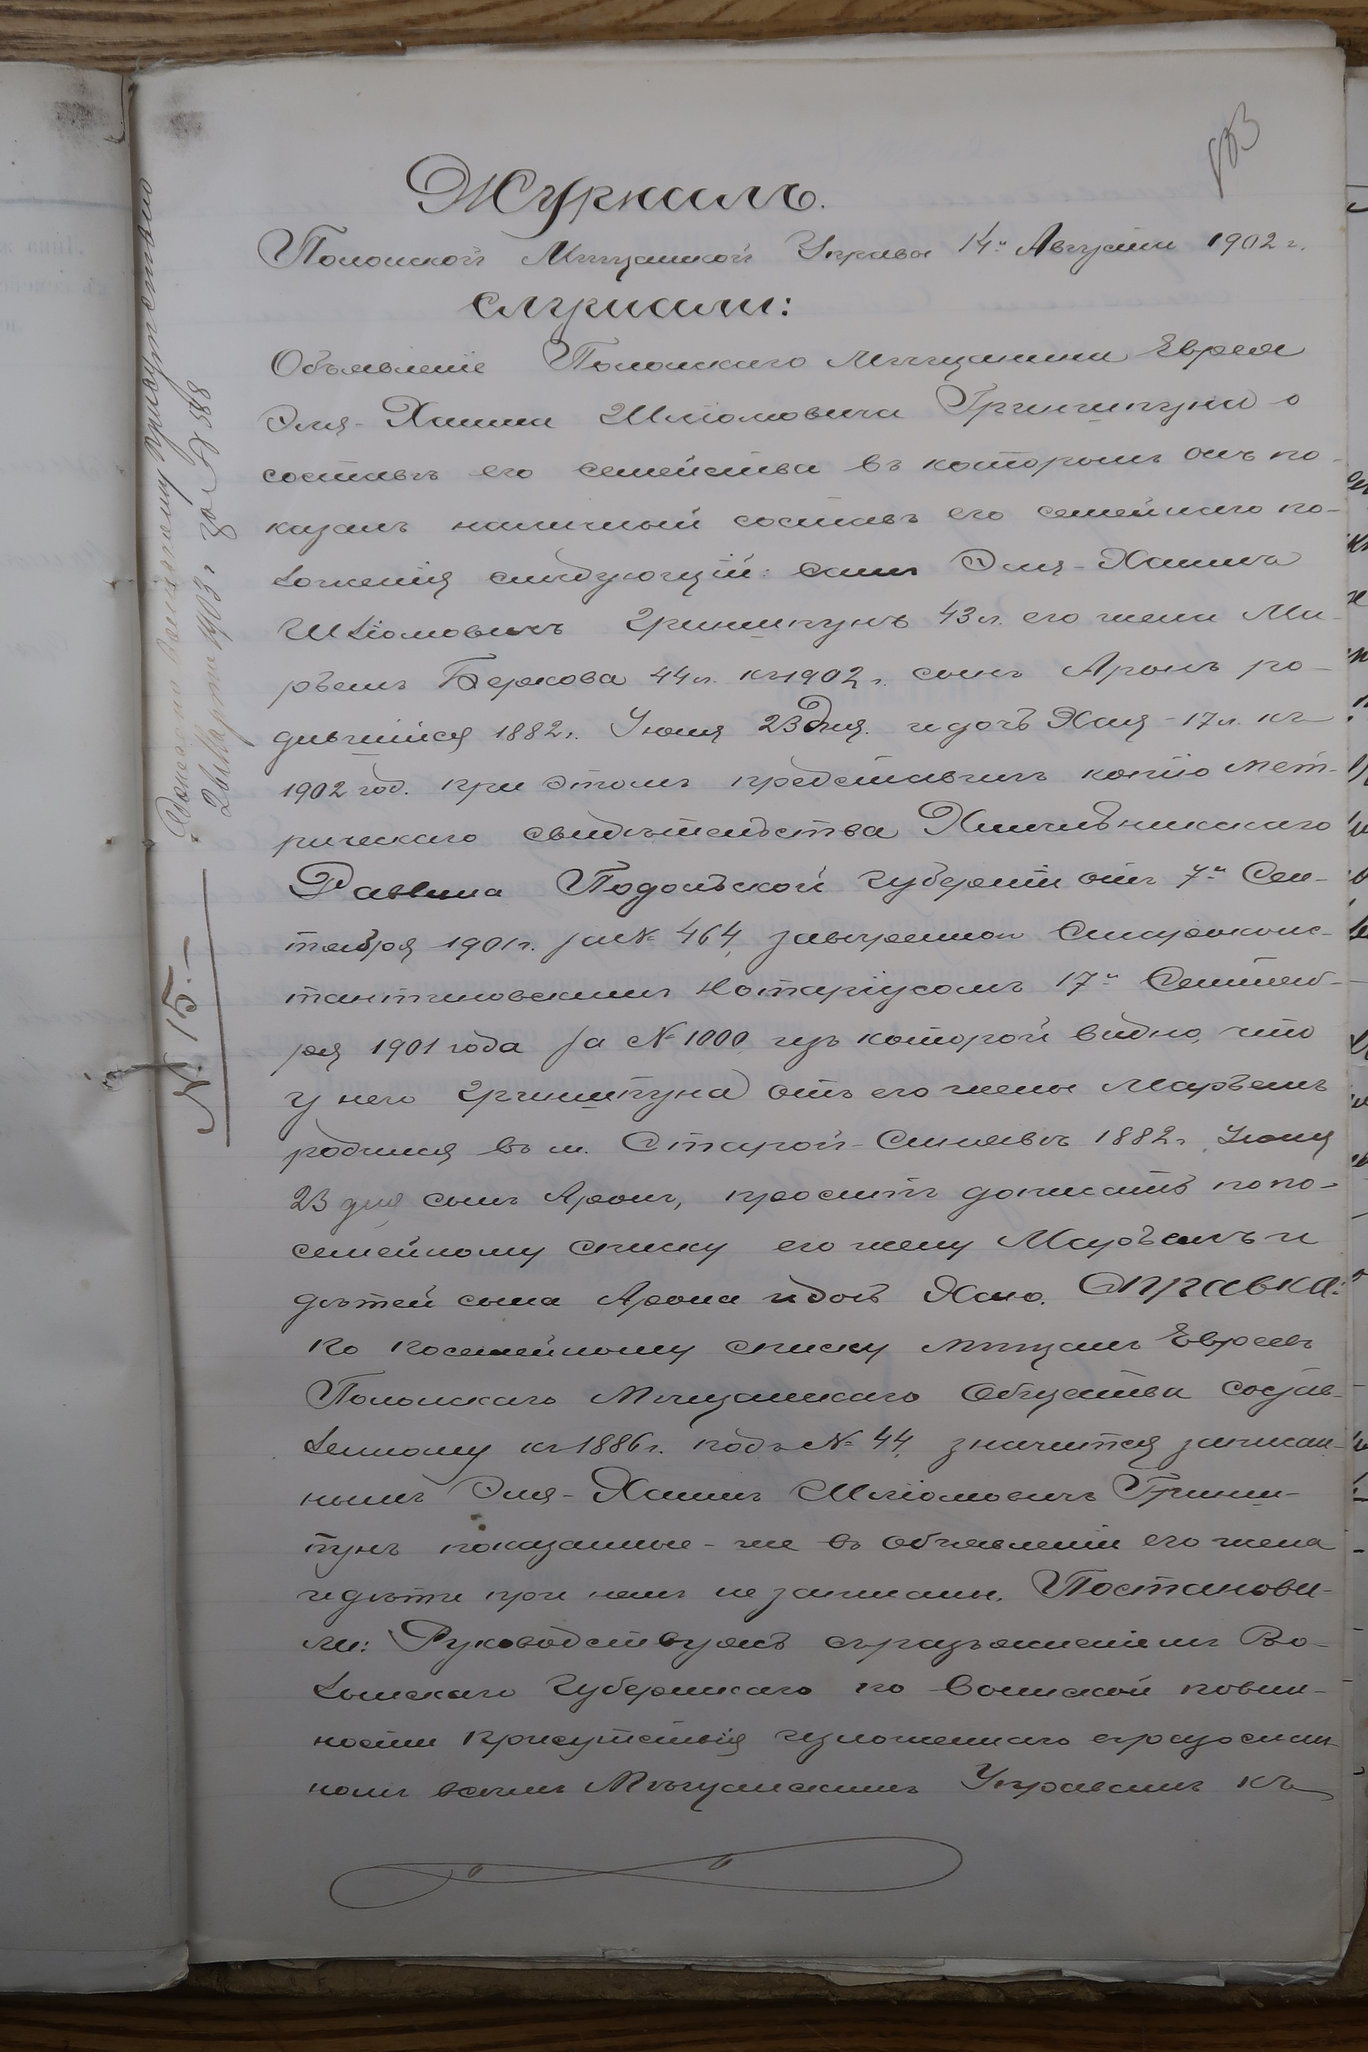 Журналъ.
Полонской Мѣщанской Управы 14го Августа 1902 г.
Слушали:
Объявленіе Полонскаго мѣщанина Еврея
Эля-Хаима Шліомовича Гринштуна о
составѣ его семейства въ которомъ онъ по-
казалъ наличный составъ его семейнаго по-
ложенія слѣдующій: самъ Эля-Хаимъ
Шліомовичъ Гринштунъ 43 л. его жена Ма-
рьемъ Беркова 44 л. къ 1902 г. сынъ Аронъ ро-
дившійся 1882 г. Іюня 23 дня. и дочь Хая - 17 л. къ
1902 год. при этомъ представилъ копію мет-
рическаго свидѣтельства Хмельникскаго
Раввина Подольской губерніи отъ 7го Сен-
тября 1901 г. за № 464, завѣренной Старокон-
стантиновскимъ Нотаріусомъ 17го Сентяб-
ря 1901 года за № 1000, изъ которой видно, что
у него Гринштуна отъ его жены Марьемъ
родился въ м. Старой-Синявѣ 1882 г. Іюня
23 дня сынъ Аронъ, проситъ дописать по по-
семейному списку его жену Марьемъ и
дѣтей сына Арона и дочь Хаю. Справка:
По посемейному списку мѣщанъ Евреевъ
Полонскаго Мѣщанскаго Общества состав-
ленному къ 1886 г. подъ № 44, значится записан-
нымъ Эля-Хаимъ Шліомовичъ Гринш-
тунъ показанные-же въ объявленіи его жена
и дѣти при немъ не записаны. Постанови-
ли: Руководствуясь съ разъясненіемъ Во-
лынскаго Губернскаго по воинской повин-
ности Присутствія изложеннаго
всѣмъ Мѣщанскимъ Управамъ къ
№ 15.-
Донесено воинскому присутствію
26 Марта 1903 г. за № 588